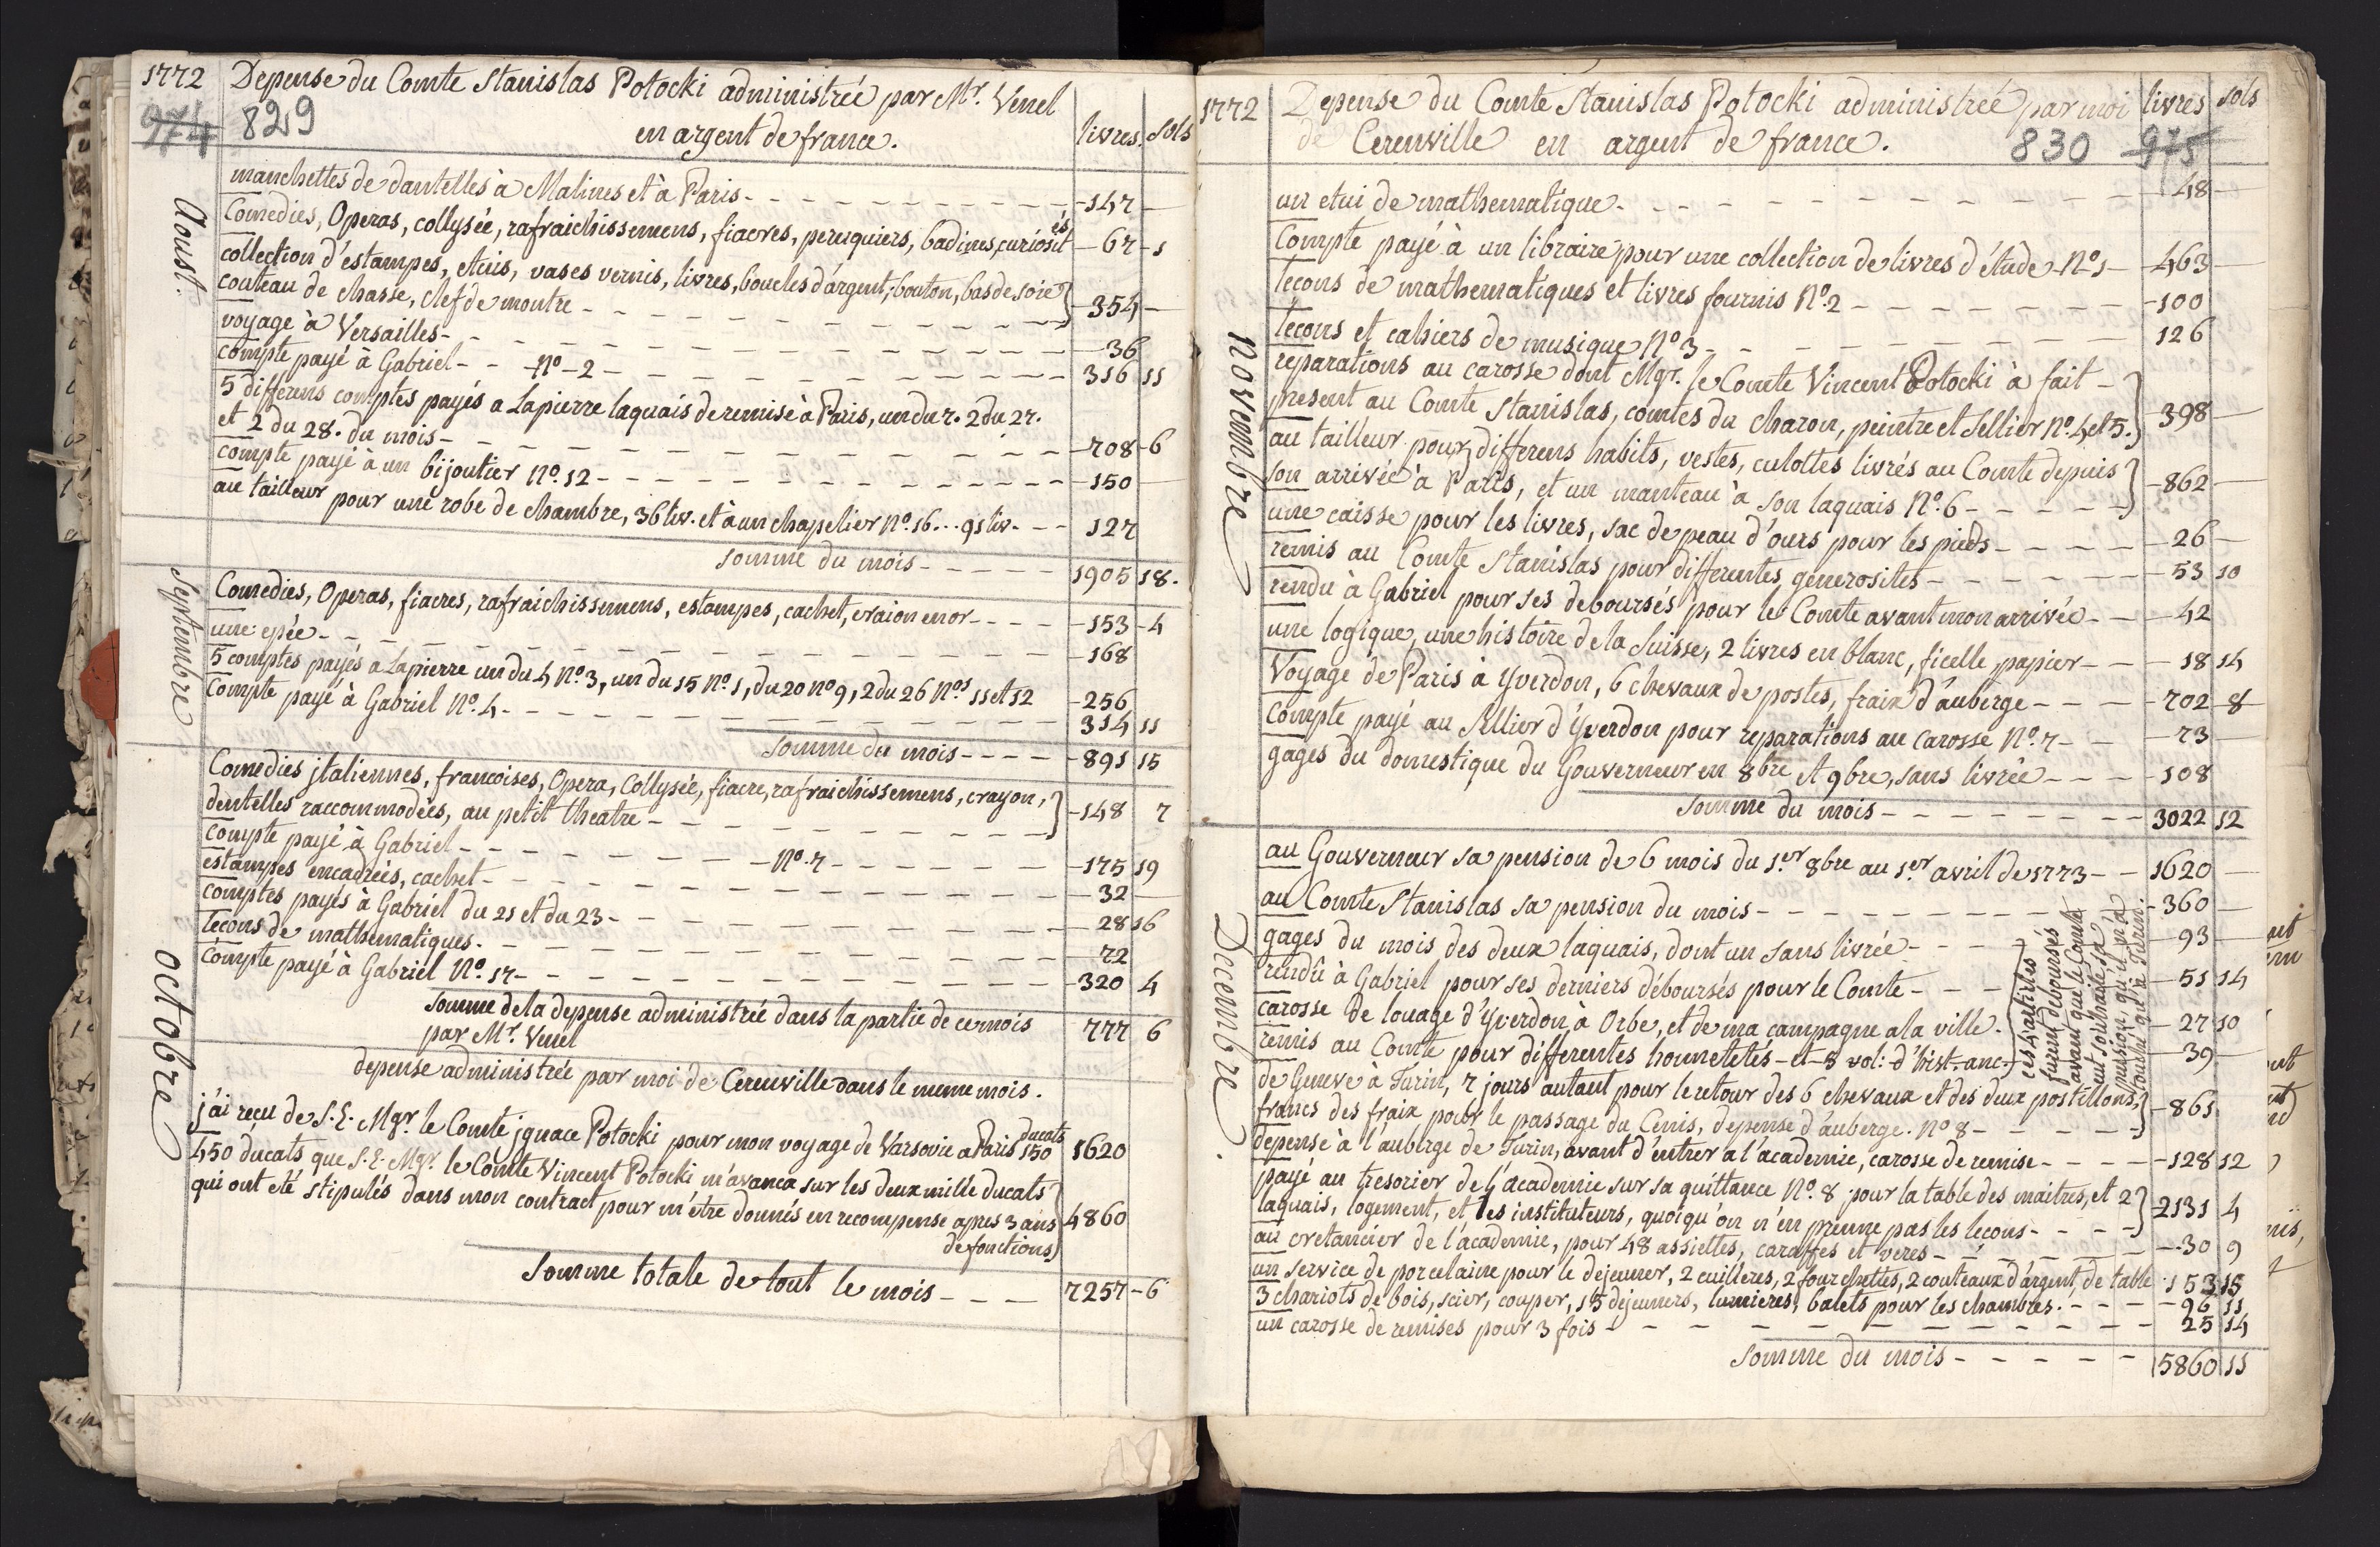 1772 Depense du Comte Stanislas Potocki administrée par Mr. Venel
974 829 en argent de france. livres. sols
Aoust.
manchettes de dantelles à Malines et à Paris - - - 147 —
Comedies, Operas, collysée, rafraichissemens, fiacres, peruquiers, badines, curiosités - 67 - 1
collection d'estampes, etuis, vases vernis, livres, boucles d'argent, bouton, bas de soie
couteau de chasse, clef de montre - - - 354 —
voyage à Versailles - - - 36
compte payé à Gabriel - - No - 2 - - - 316 11
5 differens comptes payés a Lapierre laquais de remise à Paris, un du 7. 2 du 27.
et 2 du 28. du mois - - - 708 - 6
compte payé à un bijoutier No. 12 - - - 150 —
au tailleur pour une robe de chambre, 36 liv. et à un chapelier No. 16... 91 liv. - - 127
somme du mois - - - 1905 18.
Septembre
Comedies, Operas, fiacres, rafraichissemens, estampes, cachet, craion en or - - - 153 - 4
une epée - - - 168
5 comptes payés a Lapierre un du 4 No. 3, un du 15 No. 1, du 20 no 9, 2 du 26 Nos 11 et 12 - 256
Compte payé à Gabriel No. 4 - - - 314 11
somme du mois - - - 891 15
octobre
Comedies jtaliennes, francoises, Opera, Collysée, fiacre, rafraichissemens, crayon,
dentelles raccommodées, au petit theatre - - - 148 7
compte payé à Gabriel - - - No. 7 - - - 175 19
estampes encadrées, cachet - - - 32 —
comptes payés à Gabriel du 21 et du 23 - - - 28 16
lecons de mathematiques - - - 72
compte payé à Gabriel No. 17 - - - 320 4
somme de la depense administrée dans la partie de ce mois
par Mr. Venel 777 6
depense administrée par moi de Cerenville dans le meme mois.
j'ai reçu de S. E. Mgr. le Comte jgnace Potocki pour mon voyage de Varsovie a Paris ducats 150 1620
450 ducats que S. E. Mgr. le Comte Vincent Potocki m'avança sur les deux mille ducats
qui ont eté stipulés dans mon contract pour m'étre donnés en recompense apres 3 ans
de fonctions) 4860
Somme totale de tout le mois - - - 7257 - 6
1772 Depense du Comte Stanislas Potocki administrée par moi livres sols
de Cerenville en argent de france. 830 975
novembre
un etui de mathematique - - - 48 —
Compte payé à un libraire pour une collection de livres d'étude - No 1 - 463 —
lecons de mathematiques et livres fournis No. 2 - - - 100
lecons et cahiers de musique No 3 - - - 126
reparations au carosse dont Mgr. le Comte Vincent Potocki à fait -
present au Comte Stanislas, comtes du charon, peintre et sellier No. 4 et 5. 398 —
au tailleur pour differens habits, vestes, culottes livrés au Comte depuis
son arrivée à Paris, et un manteau à son laquais No. 6 - - - 862 —
une caisse pour les livres, sac de peau d'ours pour les pieds - - - 26 —
remis au Comte Stanislas pour differentes generosites - - - 53 10
rendu à Gabriel pour ses deboursés pour le Comte avant mon arrivée - - 42
une logique, une histoire de la Suisse, 2 livres en blanc, ficelle, papier - - 18 14
Voyage de Paris à Yverdon, 6 chevaux de postes, fraix d'auberge - - - 702 - 8
Compte payé au sellier d'Yverdon pour reparations au carosse No. 7 - - 73
gages du domestique du Gouverneur en 8bre et 9bre, sans livrée - - - 108
somme du mois - - - 3022 12
Decembre.
au Gouverneur sa pension de 6 mois du 1er 8bre au 1er avril de 1773 - - 1620 —
au Comte Stanislas sa pension du mois - - - 360 —
gages du mois des deux laquais, dont un sans livrée - - - 93 —
rendû à Gabriel pour ses derniers déboursés pour le Comte - - - 51 14
carosse de louage d'Yverdon à Orbe, et de ma campagne a la ville. - 27 10
remis au Comte pour differentes honnetetés - et 8 vol: d'hist. anc. - 39 —
ces 4 articles
furent deboursés
avant que le Comte
eut souhaité sa
pension, qu'il n'a
touché qu'à Turin.
de Geneve à Turin, 7 jours autant pour le retour des 6 chevaux et des deux postillons,
francs des fraix pour le passage du Cenis, depense d'auberge. No 8 - - - 861
depense à l'auberge de Turin, avant d'entrer a l'academie, carosse de remise - - - 128 12
payé au tresorier de l'academie sur sa quittance No. 8 pour la table des maitres, et 2
laquais, logement, et les instituteurs, quoiqu'on n'en prenne pas les lecons - - - 2131 4
au cretancier de l'academie, pour 48 assiettes, caraffes et veres - - - 30 9
un service de porcelaine pour le dejeuner, 2 cuilleres, 2 fourchettes, 2 couteaux d'argent, de table 153 15
3 chariots de bois, scier, couper, 15 dejeuners, lumieres, balets pour les chambres. - - - 96 11
un carosse de remises pour 3 fois - - - 25 14
somme du mois - - - 5860 11